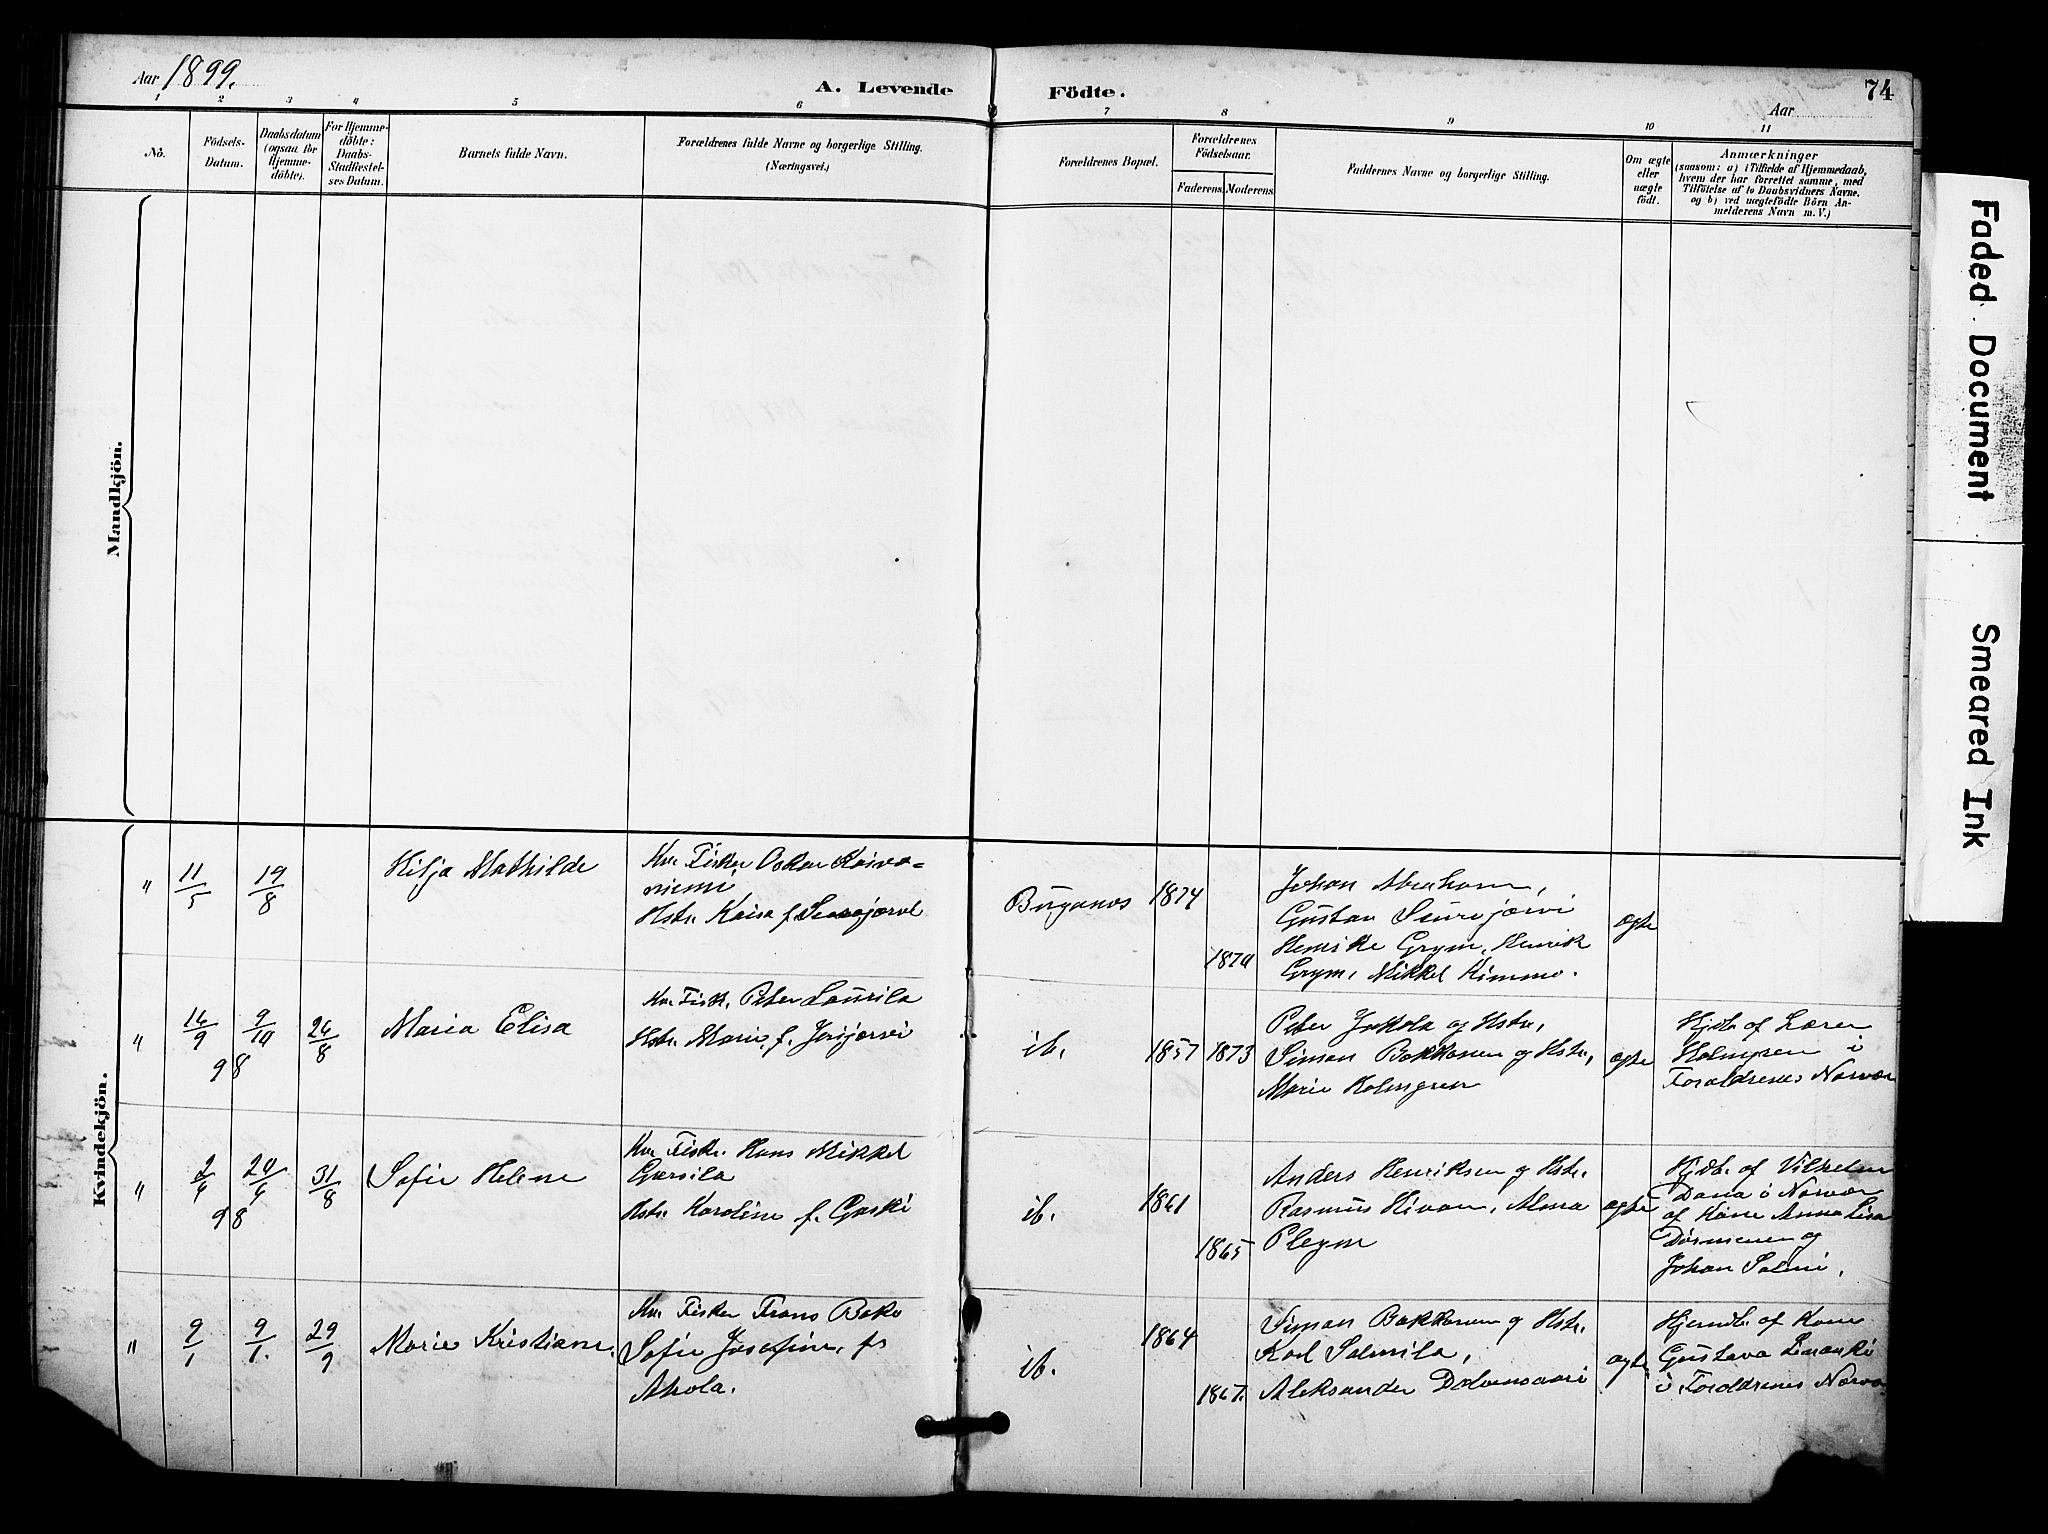 Aar 1899.
A. Levende Födte.
Aar
74
1 2 3 4 5 6 7 8 9 10 11
No.
Födsels-
Datum.
Daabsdatum
(ogsaa for
Hjemme-
döbte).
For Hjemme-
döbte:
Daabs-
Stadfæstel-
ses Datum.
Barnets fulde Navn.
Forældrenes fulde Navne og borgerlige Stilling.
(Næringsvei.)
Forældrenes Bopæl.
Forældrenes
Födselsaar.
Faderens. Moderens.
Faddernes Navne og borgerlige Stilling.
Om ægte
eller
uægte
födt.
Anmærkninger
(saasom: a) i Tilfælde af Hjemmedaab,
hvem der har forrettet samme, med
Tilföielse af to Daabsvidners Navne.
og b) ved uægtefödte Börn An-
melderens Navn m. V.)
Mandkjön.
Kvindekjön.
" 11/5 19/8
Hilja Mathilde
Kv. Fisker Oskar Koiva-
niemi
Hstr. Kaisa f.
Bugønes
1874
1870
Johan Abraham,
Gustav
Henrike Grym, Henrik
Grym, Mikkel Kimmo.
ægte
" 9/10 98 26/8
Maria Elisa
Kv. Fisk. Peter Laurila
Hstr. Marie f.
ib.
1857 1873
Peter Jokola og Hstr.,
Simon Bakkonen og Hstr.,
Marie Holmgren
ægte
Hjdb. af Lærer
Holmgren i
Forældrenes Nærvær
" 2/6 20/6 98 31/8
Sofie Helene
Kv. Fisk. Hans Mikkel
Hstr. Karoline f.
ib.
1861
1865
Anders Henriksen og Hstr.
Rasmus
ægte
Hjdb. af Vilhelm
Dana i Nærvær
af Kone Anna Lisa
og
Johan Salmi.
" 9/1 9/1. 29/9
Marie Kristiane.
Kv. Fisker Frans
Sofie Josefine, fs
Ahola.
ib.
1864
1867.
Simon Bakkonen og Hstr.
Karl Salmila,
Aleksander
ægte
Hjemdb. af Kone
Gustava
i Forældrenes Nærvær
Faded Document
Smeared Ink